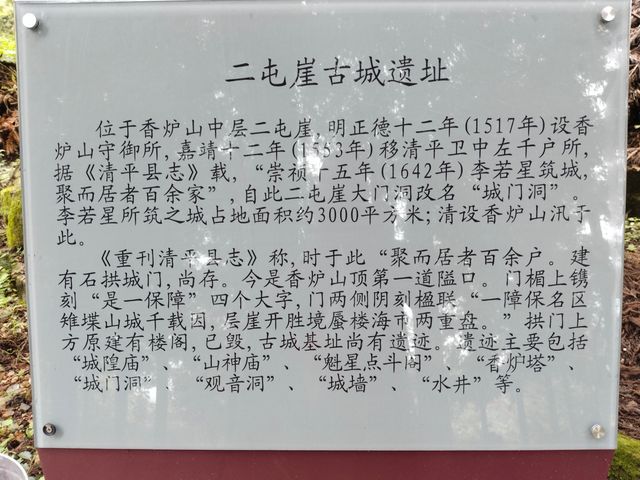 二屯崖古城遗址
位于香炉山中层二屯崖,明正德十二年(1517年)设香
炉山守御所,嘉靖十二年(1553年)移清平卫中左千户所,
据《清平县志》载,“崇祯十五年(1642年)李若星筑城,
聚而居者百余家”,自此二屯崖大门洞改名“城门洞”。
李若星所筑之城占地面积约3000平方米;清设香炉山汛于
此。
《重刊清平县志》称,时于此“聚而居者百余户。建
有石拱城门,尚存。今是香炉山顶第一道隘口。门楣上镌
刻“是一保障”四个大字,门两侧阴刻楹联“一障保名区
雉堞山城千载因,层崖开胜境蜃楼海市两重盘。”拱门上
方原建有楼阁,已毁,古城基址尚有遗迹。遗迹主要包括
“城隍庙”、“山神庙”、“魁星点斗阁”、“香炉塔”、
“城门洞”、“观音洞”、“城墙”、“水井”等。